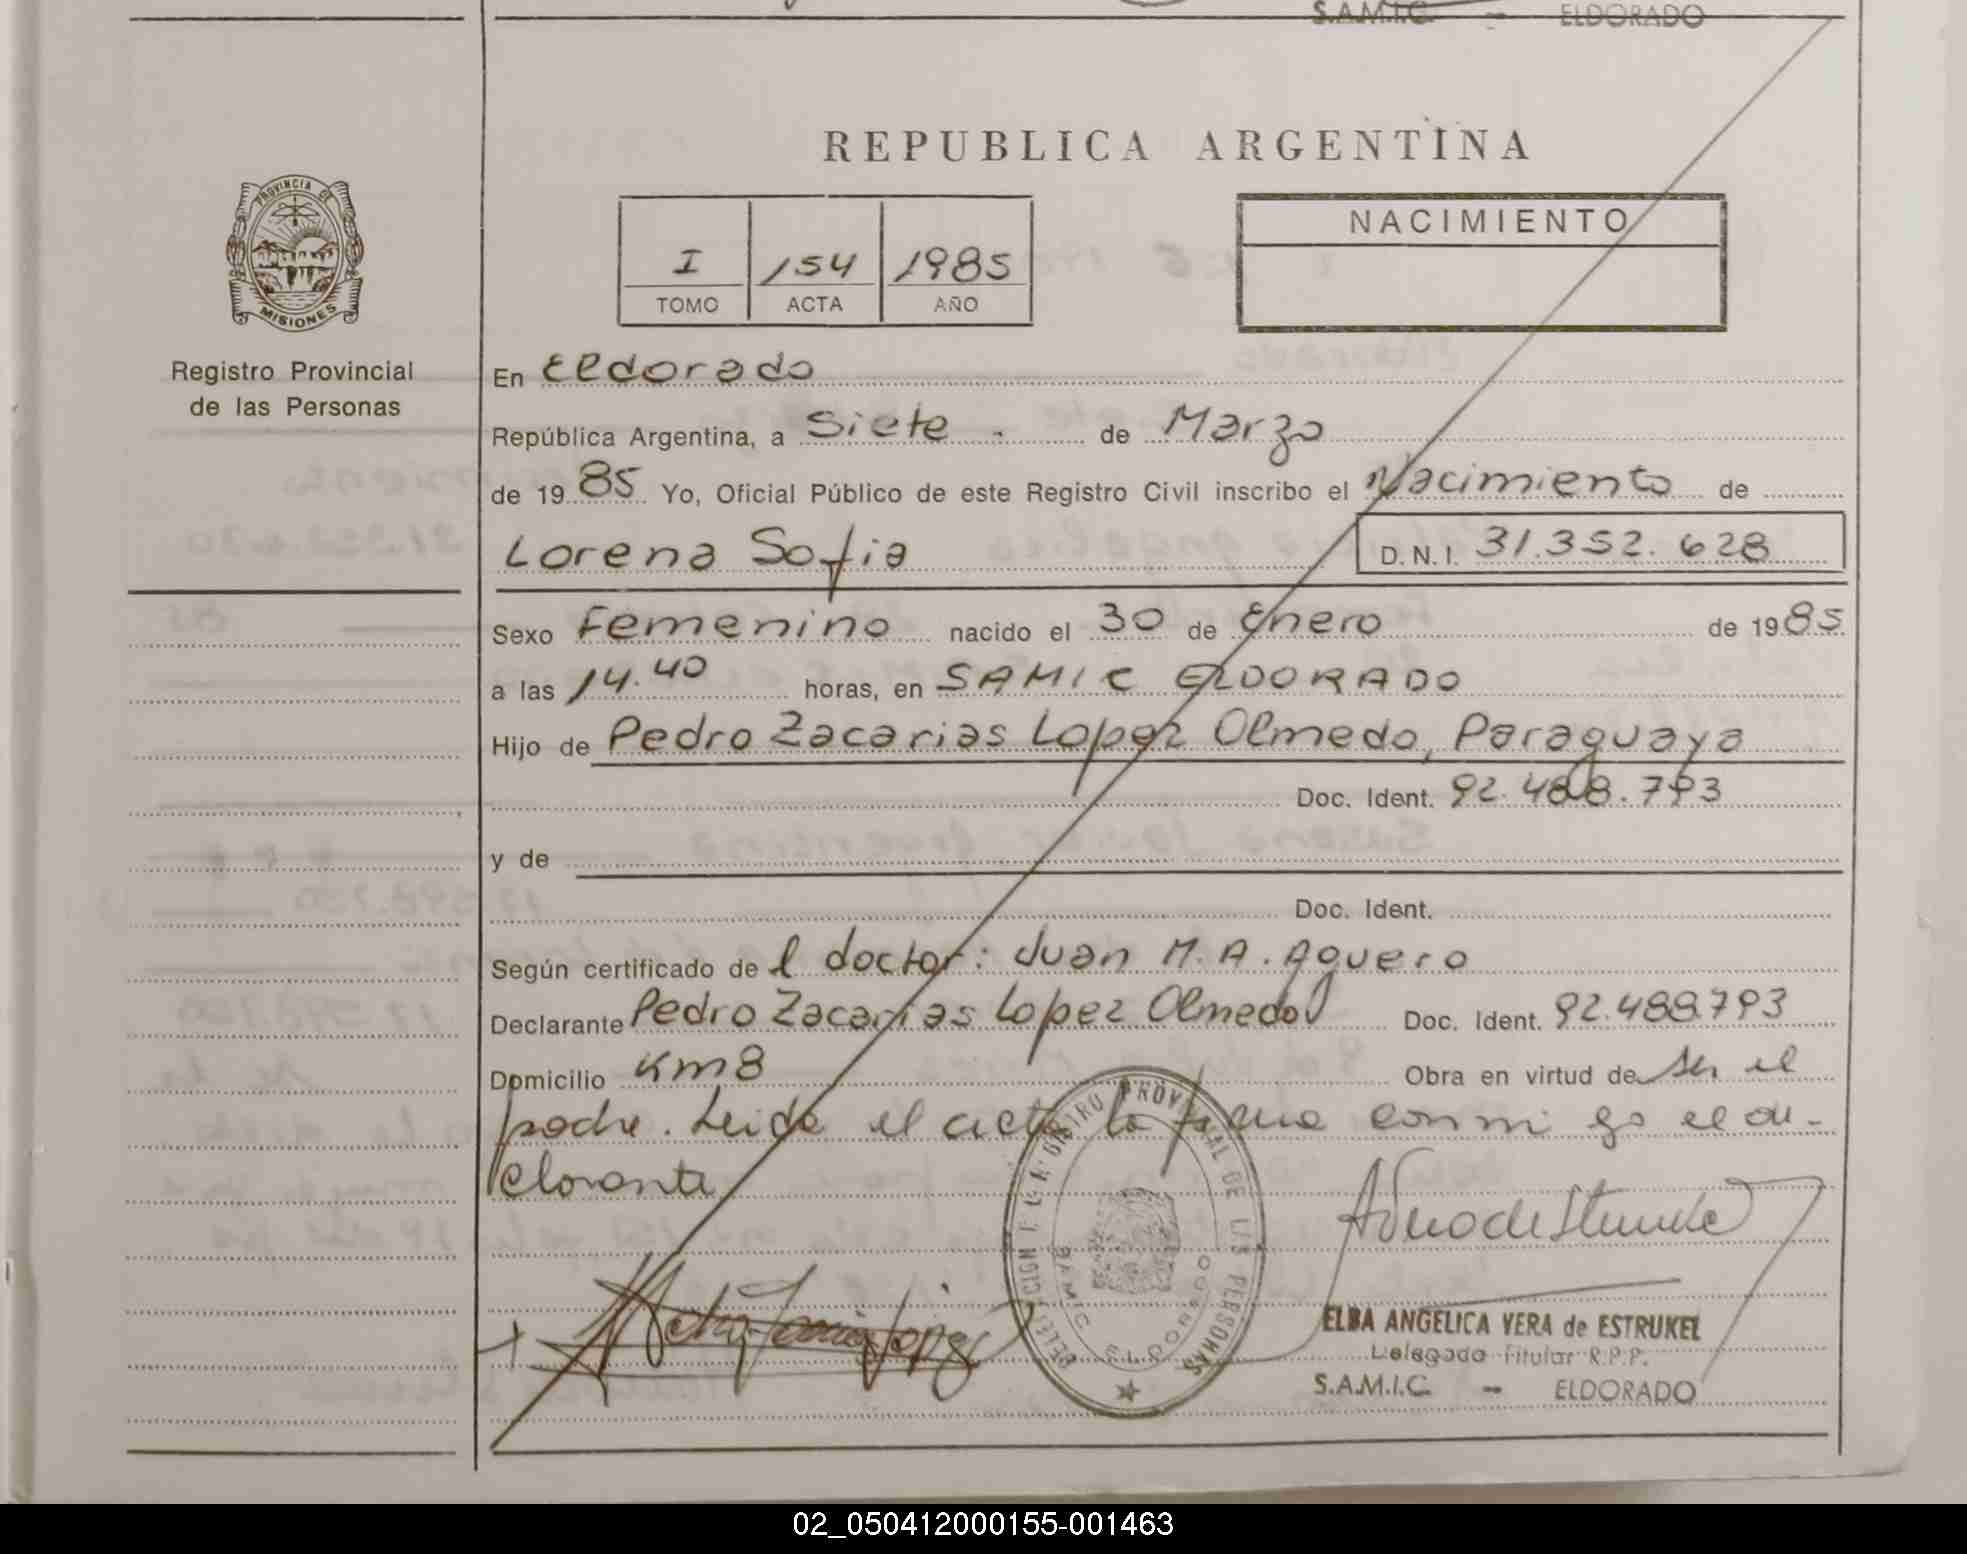 S.A.M.I.C. - ELDORADO
REPUBLICA ARGENTINA
PROVINCIA DE
MISIONES
Registro Provincial
de las Personas
I 154 1985
TOMO ACTA AÑO
NACIMIENTO
En Eldorado
República Argentina, a Siete - de Marzo
de 1985 Yo, Oficial Público de este Registro Civil inscribo el Nacimiento de
Lorena Sofia D.N.I. 31.352.628
Sexo Femenino nacido el 30 de Enero de 1985
a las 14.40 horas, en SAMIC ELDORADO
Hijo de Pedro Zacarias Lopez Olmedo, Paraguaya
Doc. Ident. 92.488.793
y de
Doc. Ident.
Según certificado de l doctor: Juan M. A. Aguero
Declarante Pedro Zacarias Lopez Olmedo Doc. Ident. 92.488.793
Domicilio Km 8 Obra en virtud de ser el
padre. Leida el acta la firma conmigo el de-
clarante
REGISTRO PROVINCIAL DE LAS PERSONAS
SAMIC ELDORADO
ELBA ANGELICA VERA de ESTRUKEL
Delegado Titular R.P.P.
S.A.M.I.C. - ELDORADO
02_050412000155-001463